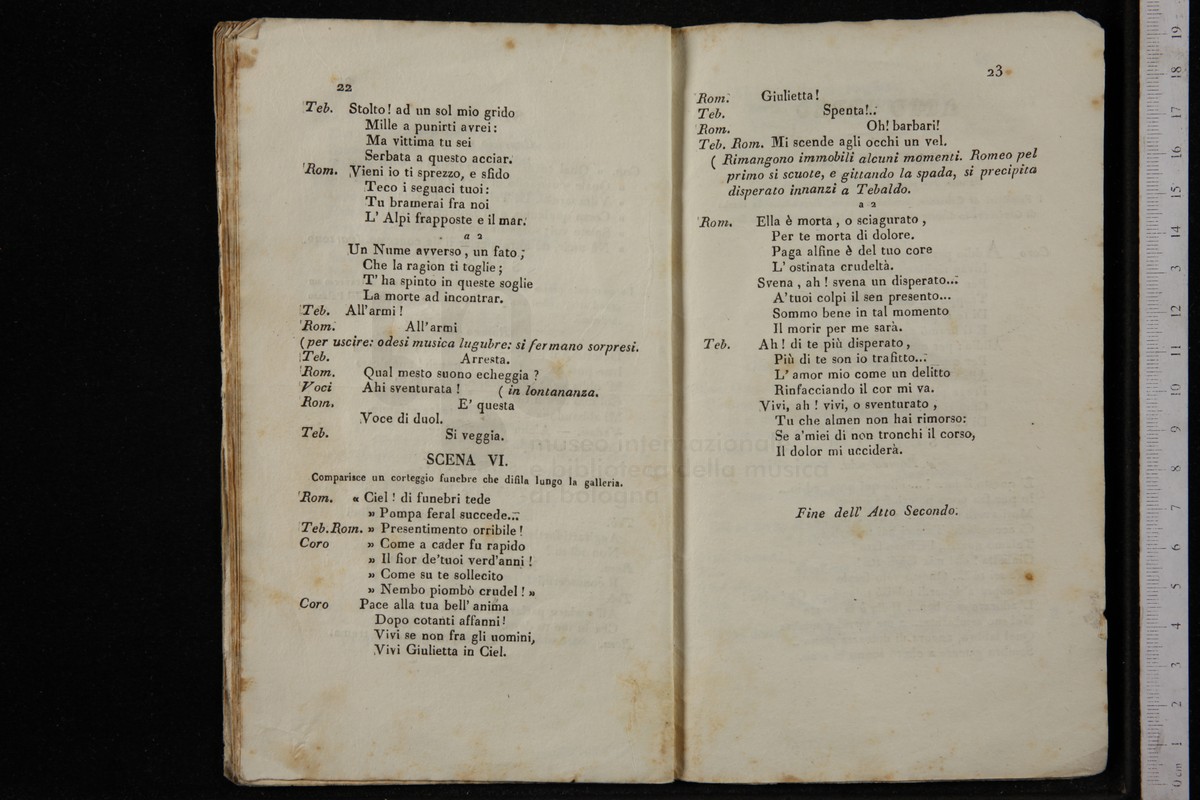 22
Teb. Stolto! ad un sol mio grido
Mille a punirti avrei:
Ma vittima tu sei
Serbata a questo acciar.
Rom. Vieni io ti sprezzo, e sfido
Teco i seguaci tuoi:
Tu bramerai fra noi
L' Alpi frapposte e il mar.
a 2
Un Nume avverso, un fato;
Che la ragion ti toglie;
T' ha spinto in queste soglie
La morte ad incontrar.
Teb. All'armi!
Rom. All'armi
(per uscire: odesi musica lugubre: si fermano sorpresi.
Teb. Arresta.
Rom. Qual mesto suono echeggia ?
Voci Ahi sventurata ! ( in lontananza.
Rom. E' questa
Voce di duol.
Teb. Si veggia.
SCENA VI.
Comparisce un corteggio funebre che difila lungo la galleria.
Rom. « Ciel ! di funebri tede
» Pompa feral succede...
Teb. Rom. » Presentimento orribile !
Coro » Come a cader fu rapido
» Il fior de'tuoi verd'anni !
» Come su te sollecito
» Nembo piombò crudel ! »
Coro Pace alla tua bell' anima
Dopo cotanti affanni!
Vivi se non fra gli uomini,
Vivi Giulietta in Ciel.
23
Rom. Giulietta!
Teb. Spenta!..
Rom. Oh! barbari!
Teb. Rom. Mi scende agli occhi un vel.
( Rimangono immobili alcuni momenti. Romeo pel
primo si scuote, e gittando la spada, si precipita
disperato innanzi a Tebaldo.
a 2
Rom. Ella è morta, o sciagurato,
Per te morta di dolore.
Paga alfine è del tuo core
L' ostinata crudeltà.
Svena, ah ! svena un disperato...
A'tuoi colpi il sen presento...
Sommo bene in tal momento
Il morir per me sarà.
Teb. Ah ! di te più disperato,
Più di te son io trafitto...
L' amor mio come un delitto
Rinfacciando il cor mi va.
Vivi, ah ! vivi, o sventurato,
Tu che almen non hai rimorso:
Se a'miei dì non tronchi il corso,
Il dolor mi ucciderà.
Fine dell' Atto Secondo.
museo internazionale
e biblioteca della musica
di bologna
0 cm 1 2 3 4 5 6 7 8 9 10 11 12 13 14 15 16 17 18 19